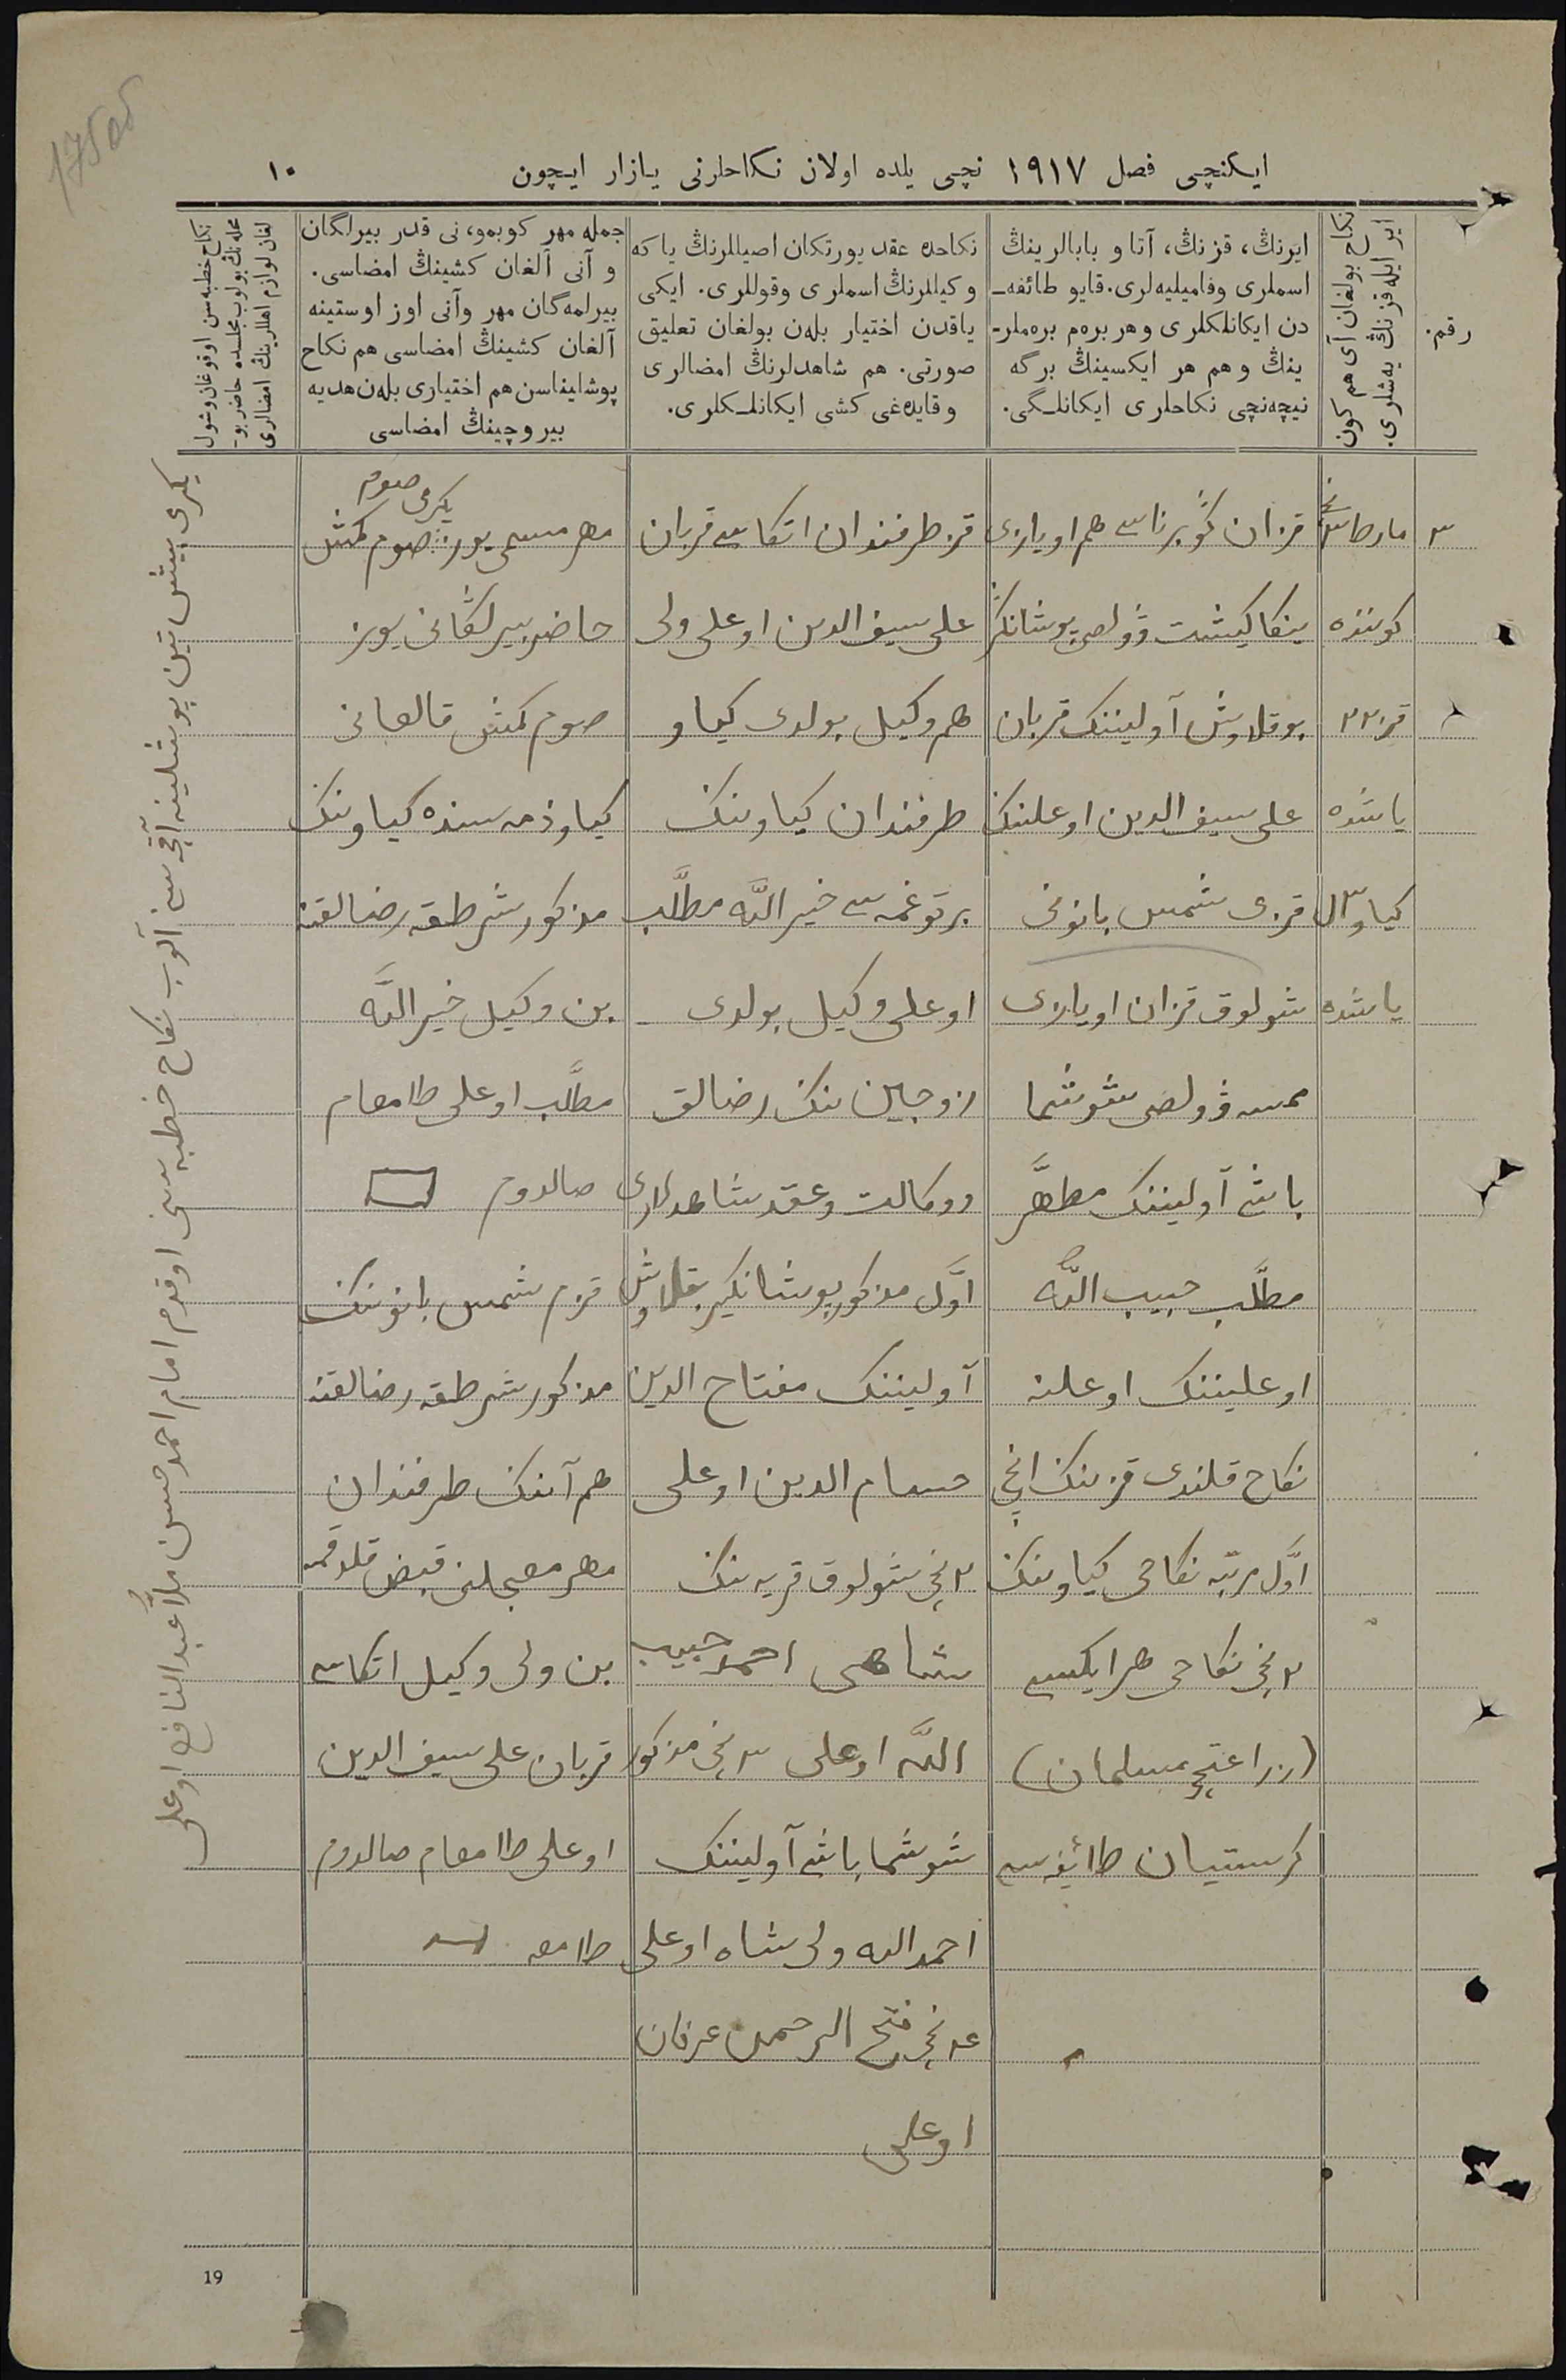 175 об
ایکنچی فصل ۱۹۱۷ نچی یلده اولان نکاحلرنی یازار ایچون
۱۰
رقم.
نکاح بولغان آی هم کون
ایر ایله قزنڭ یه‌شلری.
ایرنڭ، قزنڭ، آتا و بابالرینڭ
اسملری وفامیلیه‌لری. قایو طائفه‌ـ
دن ایکانلکلری و هر بره‌م بره‌ملرـ
ینڭ و هم هر ایکسینڭ برگه
نیچه‌نچی نکاحلری ایکانلـگی.
نکاحده عقد یورتکان اصیللرنڭ یا که
وکیللرنڭ اسملری وقوللری. ایکی
یاقدن اختیار بله‌ن بولغان تعلیق
صورتی. هم شاهدلرنڭ امضالری
و قایده‌غی کشی ایکانلـکلری.
جمله مهر کوبمو، نی قدر بیرلگان
و آنی آلغان کشینڭ امضاسی.
بیرلمه‌گان مهر وآنی اوز اوستینه
آلغان کشینڭ امضاسی هم نکاح
پوشلیناسن هم اختیاری بله‌ن هدیه
بیروچینڭ امضاسی
نکاح خطبه‌سن اوقوغان وشول
محله‌نڭ بولوب مجلسده حاضر بوـ
لغان لوازم اهللرینڭ امضالری
۳
مارطا ۳نچی
کوننده
قز ۲۲
یاشده
کیاو ۳۱
یاشده
قزان گوبرناسی هم اویازی
ینکا کیشت وولصی پوشانگر
بوقلاوش آولیننک قربان
علی سیف الدین اوعلننک
قزی شمس بانونی
شولوق قزان اویازی
ممسه وولصی شوشما
باشی آولیننک مطهَّر
مطلَّب حبیب اللَّه
اوعلیننک اوعلنه
نکاح قلندی قزننک انچی
اوَّل مرتبه نکاحی کیاوننک
۲نچی نکاحی هر ایکسی
(زراعتچی مسلمان)
کرستیان طائفه‌سی
قز طرفندان اتکاسی قربان
علی سیف الدین اوعلی ولی
هم وکیل بولدی کیاو
طرفندان کیاوننک
برتوغمه‌سی خیر اللَّه مطلَّب
اوعلی وکیل بولدی
زوجین ننک رضالق
و وکالت و عقد شاهدلاری
اوَّل مذکور پوشانگیر بقلاوش
آولیننک مفتاح الدین
حسام الدین اوعلی
۲نچی شولوق قریه ننک
شاهی احمد حبیب
اللَّه اوعلی ۳نچی مذکور
شوشما باشی آولیننک
احمدالله ولی شاه اوعلی
۴نچی فتح الرحمن عرفان
اوعلی
یکرمی صوم
مهر مسمی یوز صوم کمش
حاضر بیرلگانی یوز
صوم کمش قالعانی
کیاو ذمه‌سنده کیاوننک
مذکور شرطقه رضالقنه
بن وکیل خیر اللَّه
مطلَّب اوعلی طامعام
صالدوم
قزم شمس بانوننک
مذکور شرطقه رضالقنه
هم آننک طرفندان
مهر معجلنی قبض قلدقمه
بن ولی وکیل اتکاسی
قربان علی سیف الدین
اوعلی طامعام صالدوم
طامعه
یکرمی بیش تین پوشلینه آقچه‌سی آلوب نکاح خطبه‌سنی اوقدم امام احمد حسن ملا عبد النافع اوعلی
19